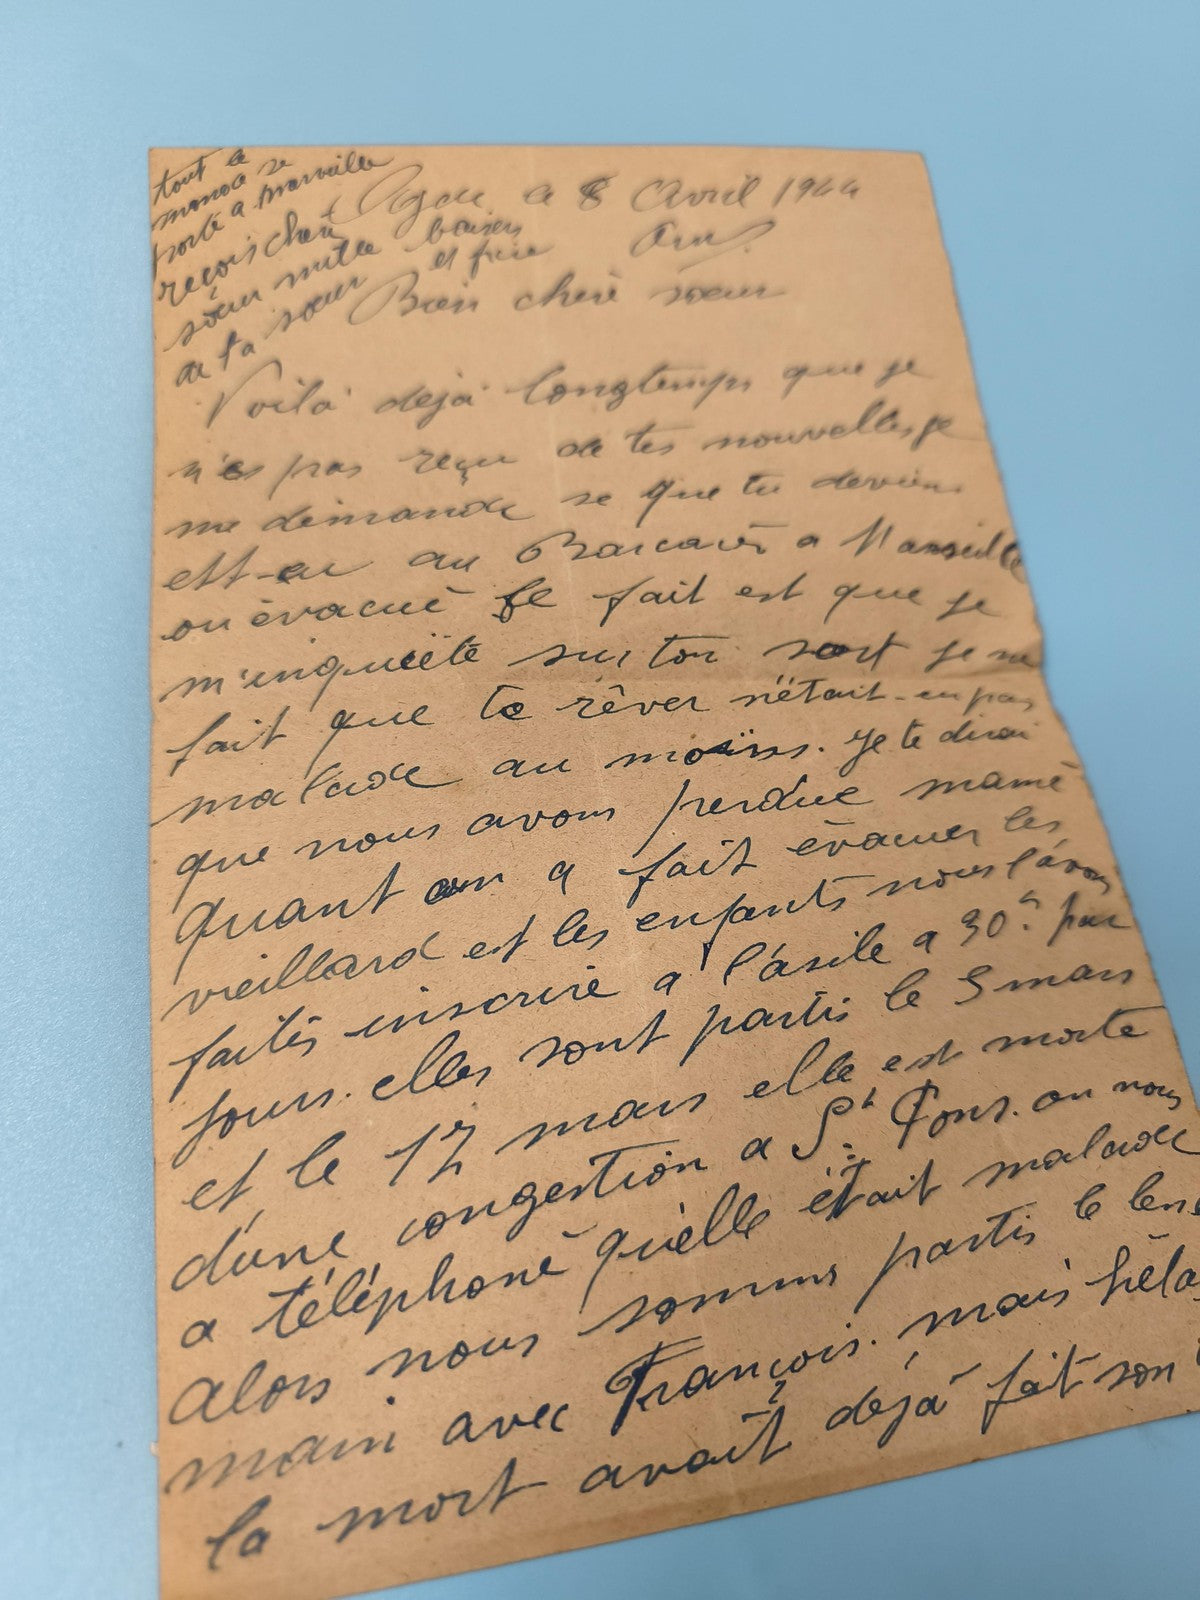 tout le
monde se
porte a merveille
reçois chère
sœur mille baisers
de ta sœur et frère
Agde a 8 Avril 1944
Bien chère sœur
Voilà dejà longtemps que je
n'es pas reçu de tes nouvelles je
me demande se que tu deviens
est-ce au Barcarès a Marseille
ou èvacuè le fait est que je
m'inquiète sur ton sort je ne
fait que te rêver n'ètait-en pas
malade au moins. Je te dirai
que nous avons perdue mamè
quant on a fait èvacuer les
vieillard et les enfants nous l'avons
faites inscrire a l'asile a 30 par
jour. elles sont partis le 3 mars
et le 12 mars elle est morte
d'une congestion a St Pons. on nous
a téléphonè qu'elle était malade
alors nous sommes partis le len
main avec François. mais hèla
la mort avait dejà fait son